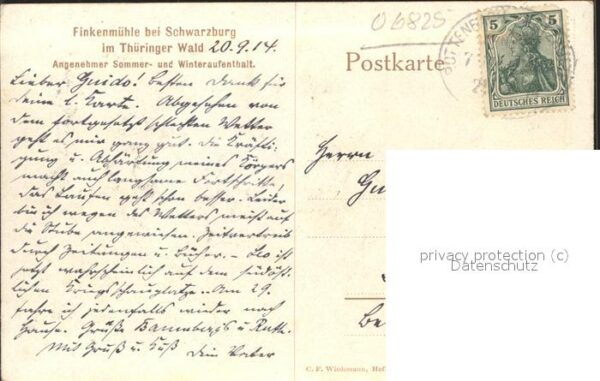 Finkenmühle bei Schwarzburg
im Thüringer Wald 20.9.14.
Angenehmer Sommer- und Winteraufenthalt.
Lieber Guido! besten Dank für
deine l. Karte. Abgesehen von
dem fortgesetzt schlechten Wetter
geht es mir ganz gut. Die Kräfti-
gung u. Abhärtung meines Körpers
macht auch langsame Fortschritte,
das Laufen geht schon besser. Leider
bin ich wegen des Wetters meist auf
die Stube angewiesen. Zeitvertreib
durch Zeitungen u. Bücher. – Leo ist
jetzt wahrscheinlich auf dem südöst-
lichen Kriegsschauplatz. – Am 29.
fahre ich jedenfalls wieder nach
Hause. Grüße u.
Mit Gruß u. Kuß dein Vater
06825
Postkarte
5 5
DEUTSCHES REICH
Herrn
Gu
Be
privacy protection (c)
Datenschutz
C. F. Winkemann, Hof